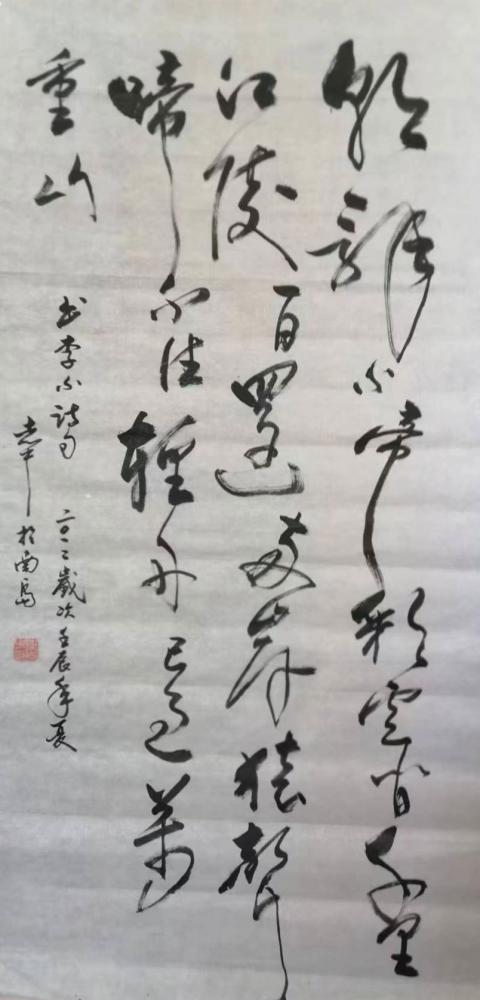 朝辞白帝彩云间千里
江陵百里还两岸猿声
啼不住轻舟已过万
重山
书李白诗句 二〇一二岁次壬辰年夏
于南岛